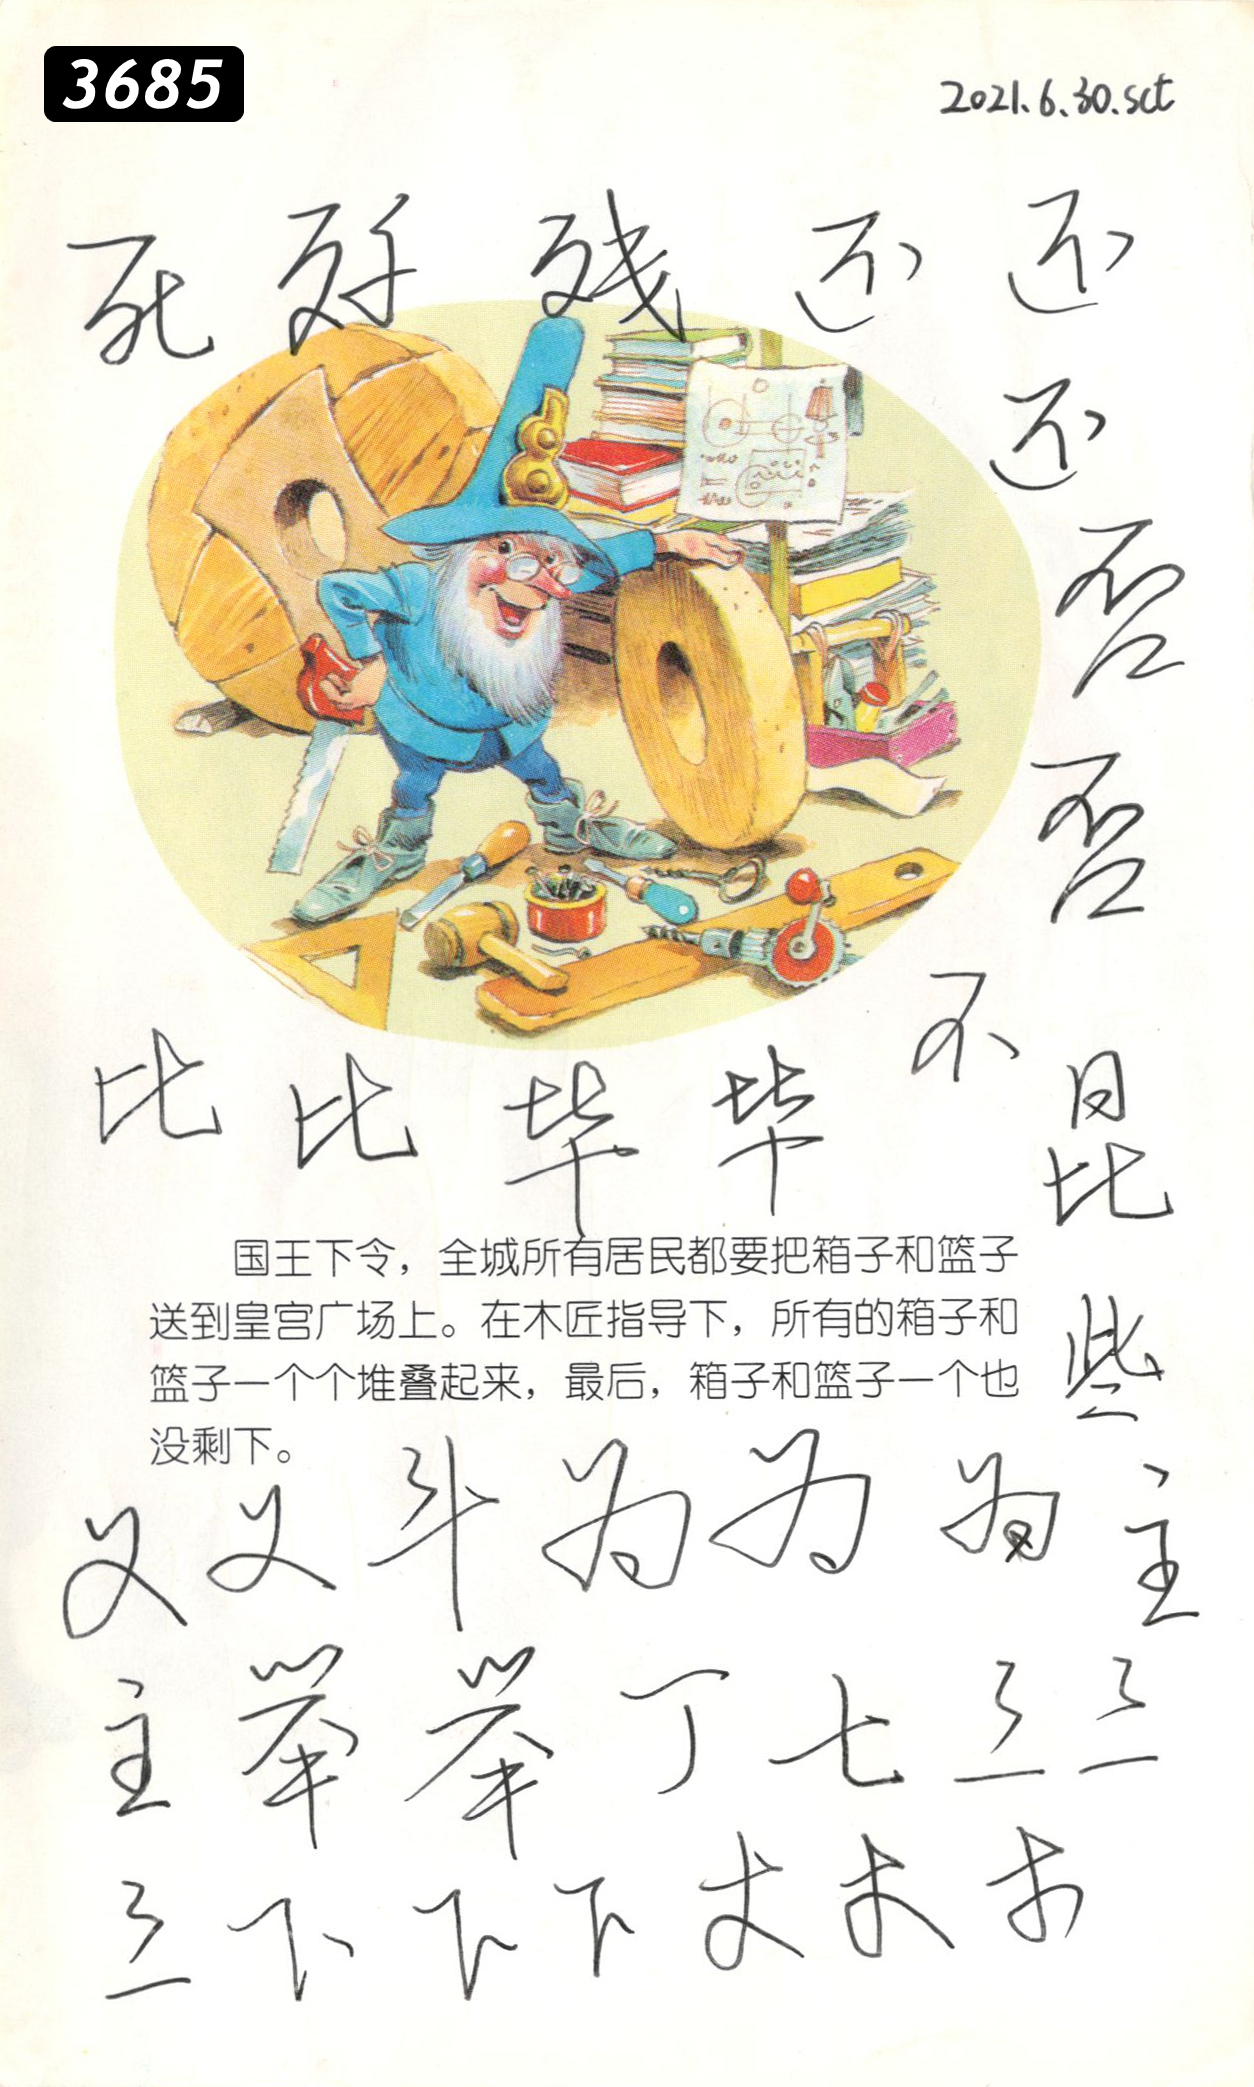 3685
2021.6.30.sct
死 歼 残 还 还
还
否
否
不
比 比 毕 毕
昆
国王下令，全城所有居民都要把箱子和篮子
送到皇宫广场上。在木匠指导下，所有的箱子和
篮子一个个堆叠起来，最后，箱子和篮子一个也
没剩下。
些
义 义 斗 为 为 为 主
主 举 举 丁 七 三 三
三 下 下 下 丈